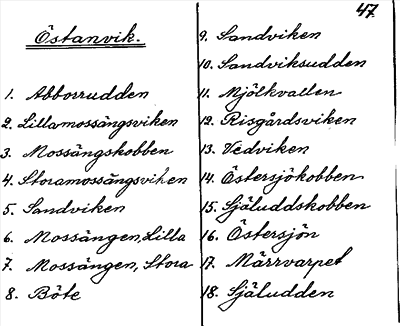 47
Östanvik.
1. Abborrudden
2. Lillamossängsviken
3. Mossängskobben
4. Storamossängsviken
5. Sandviken
6. Mossängen, Lilla
7. Mossängen, Stora
8. Böte
9. Sandviken
10. Sandviksudden
11. Mjölkvallen
12. Risgårdsviken
13. Vedviken
14. Östersjökobben
15. Själuddskobben
16. Östersjön
17. Märrvarpet
18. Själudden